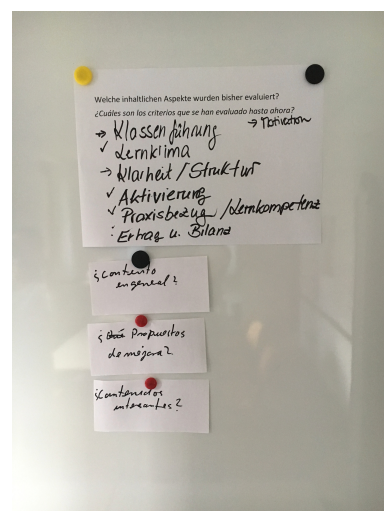 Welche inhaltlichen Aspekte wurden bisher evaluiert?
¿Cuáles son los criterios que se han evaluado hasta ahora?
→ Klassenführung → Motivation
✓ Lernklima
→ Klarheit / Struktur
✓ Aktivierung
✓ Praxisbezug / Lernkompetenz
: Ertrag u. Bilanz
¿Contento
en general?
¿ Propuestas
de mejora?
¿Contenidos
interesantes?